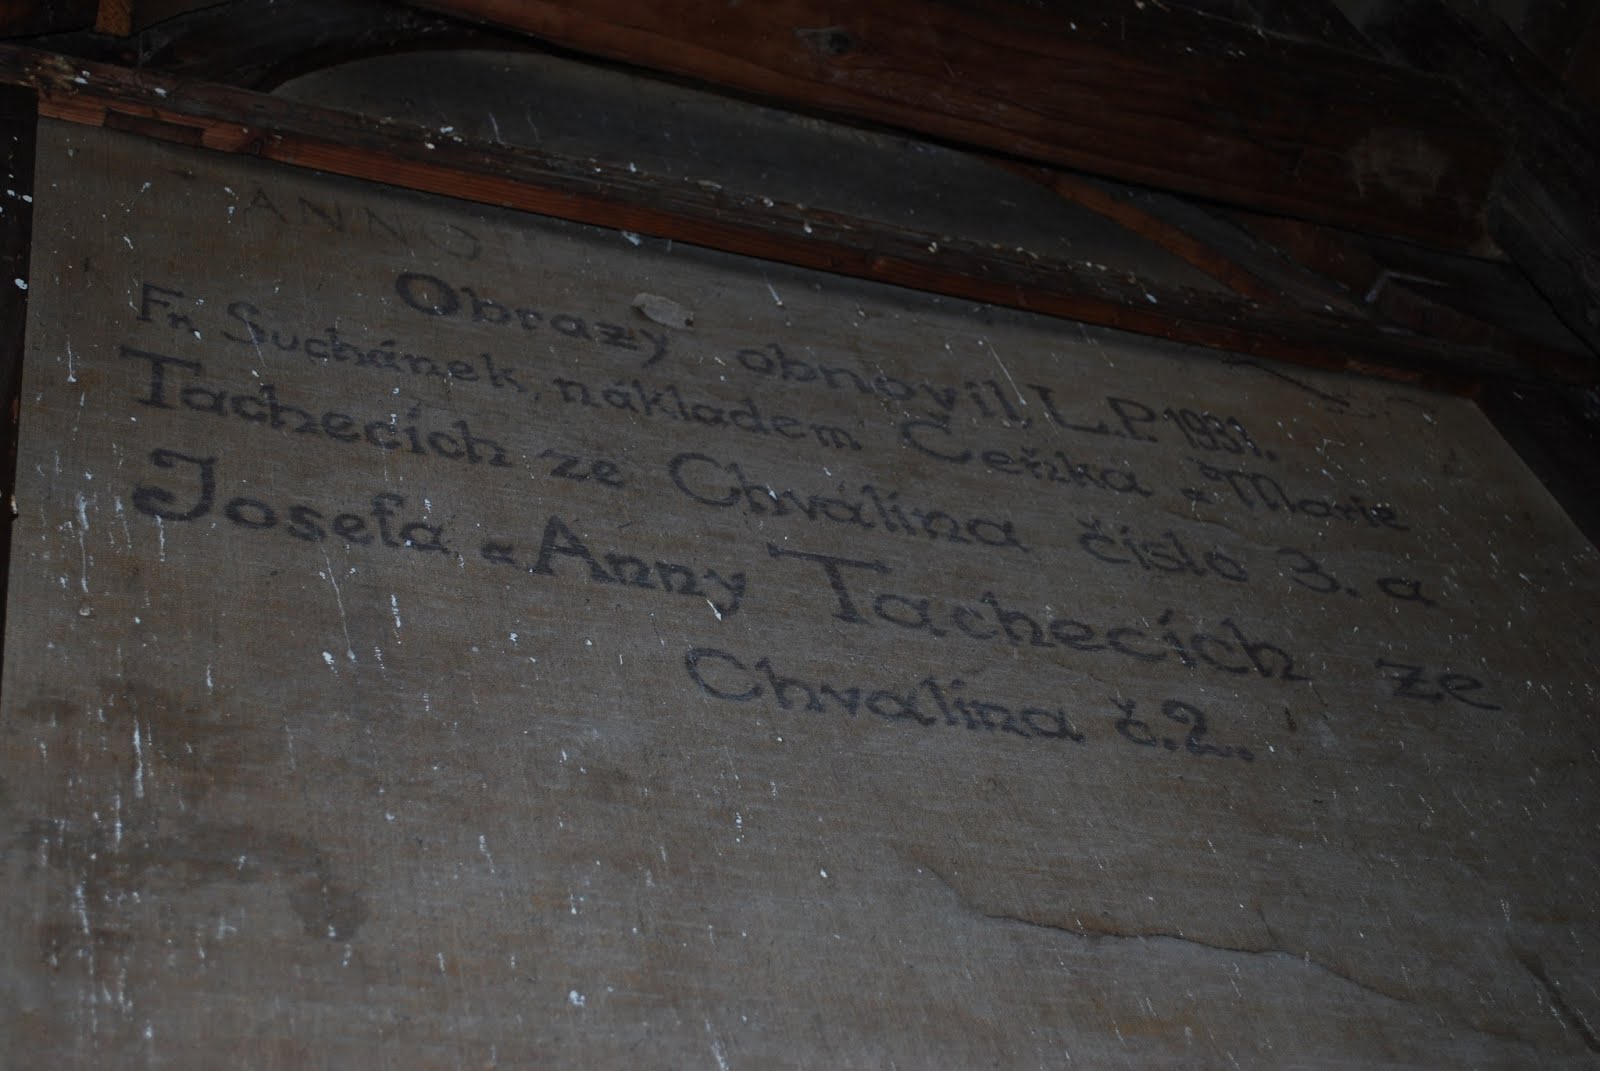 ANNO
Obrazy obnovil, L.P. 1931.
Fr. Suchánek, nákladem Čeňka a Marie
Tachecích ze Chvalína číslo 3. a
Josefa a Anny Tachecích ze
Chvalína č.2.